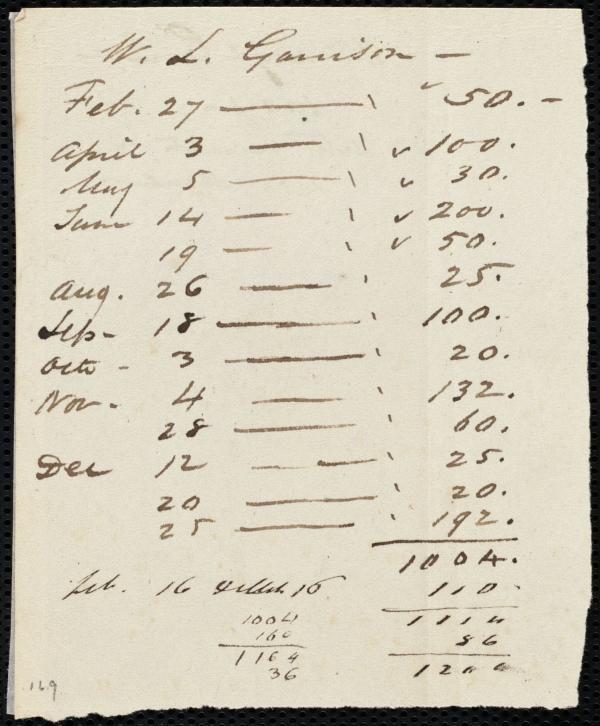 W. L. Garrison —
Feb. 27 — 50. —
April 3 — 100.
May 5 — 30.
June 14 — 200.
19 — 50.
Aug. 26 — 25.
Sep - 18 — 100.
Octo - 3 — 20.
Nov - 4 — 132.
28 — 60.
Dec 12 — 25.
20 — 20.
25 — 192.
1004.
Feb. 16 16 110
1004 1114
160 86
1164 1200
36
169